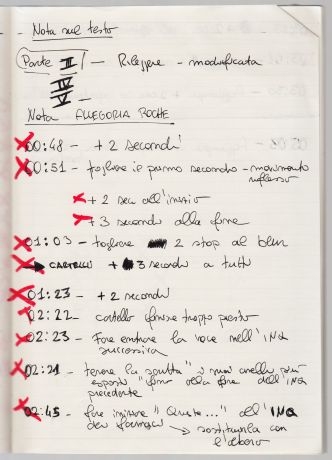 - Nota sul testo
Parte III - Rileggere - modificata
IV
V -
Nota ALLEGORIA ROCHE
00:48 - + 2 secondi
00:51 - togliere il primo secondo - movimento
riflesso
+ 2 sec all'inizio
+ 3 secondi alla fine
01:03 - togliere 2 stop al blu
→ CARTELLI + 3 secondi a tutti
01:23 - + 2 secondi
02:22 - cartello finisce troppo presto
02:23 - Fare entrare la voce nell'INQ
successiva
02:21 - tenere la
fino alla fine dell'INQ
precedente
02:45 - fare iniziare "Questo..." all'INQ
dei → sostituirla con
l'albero